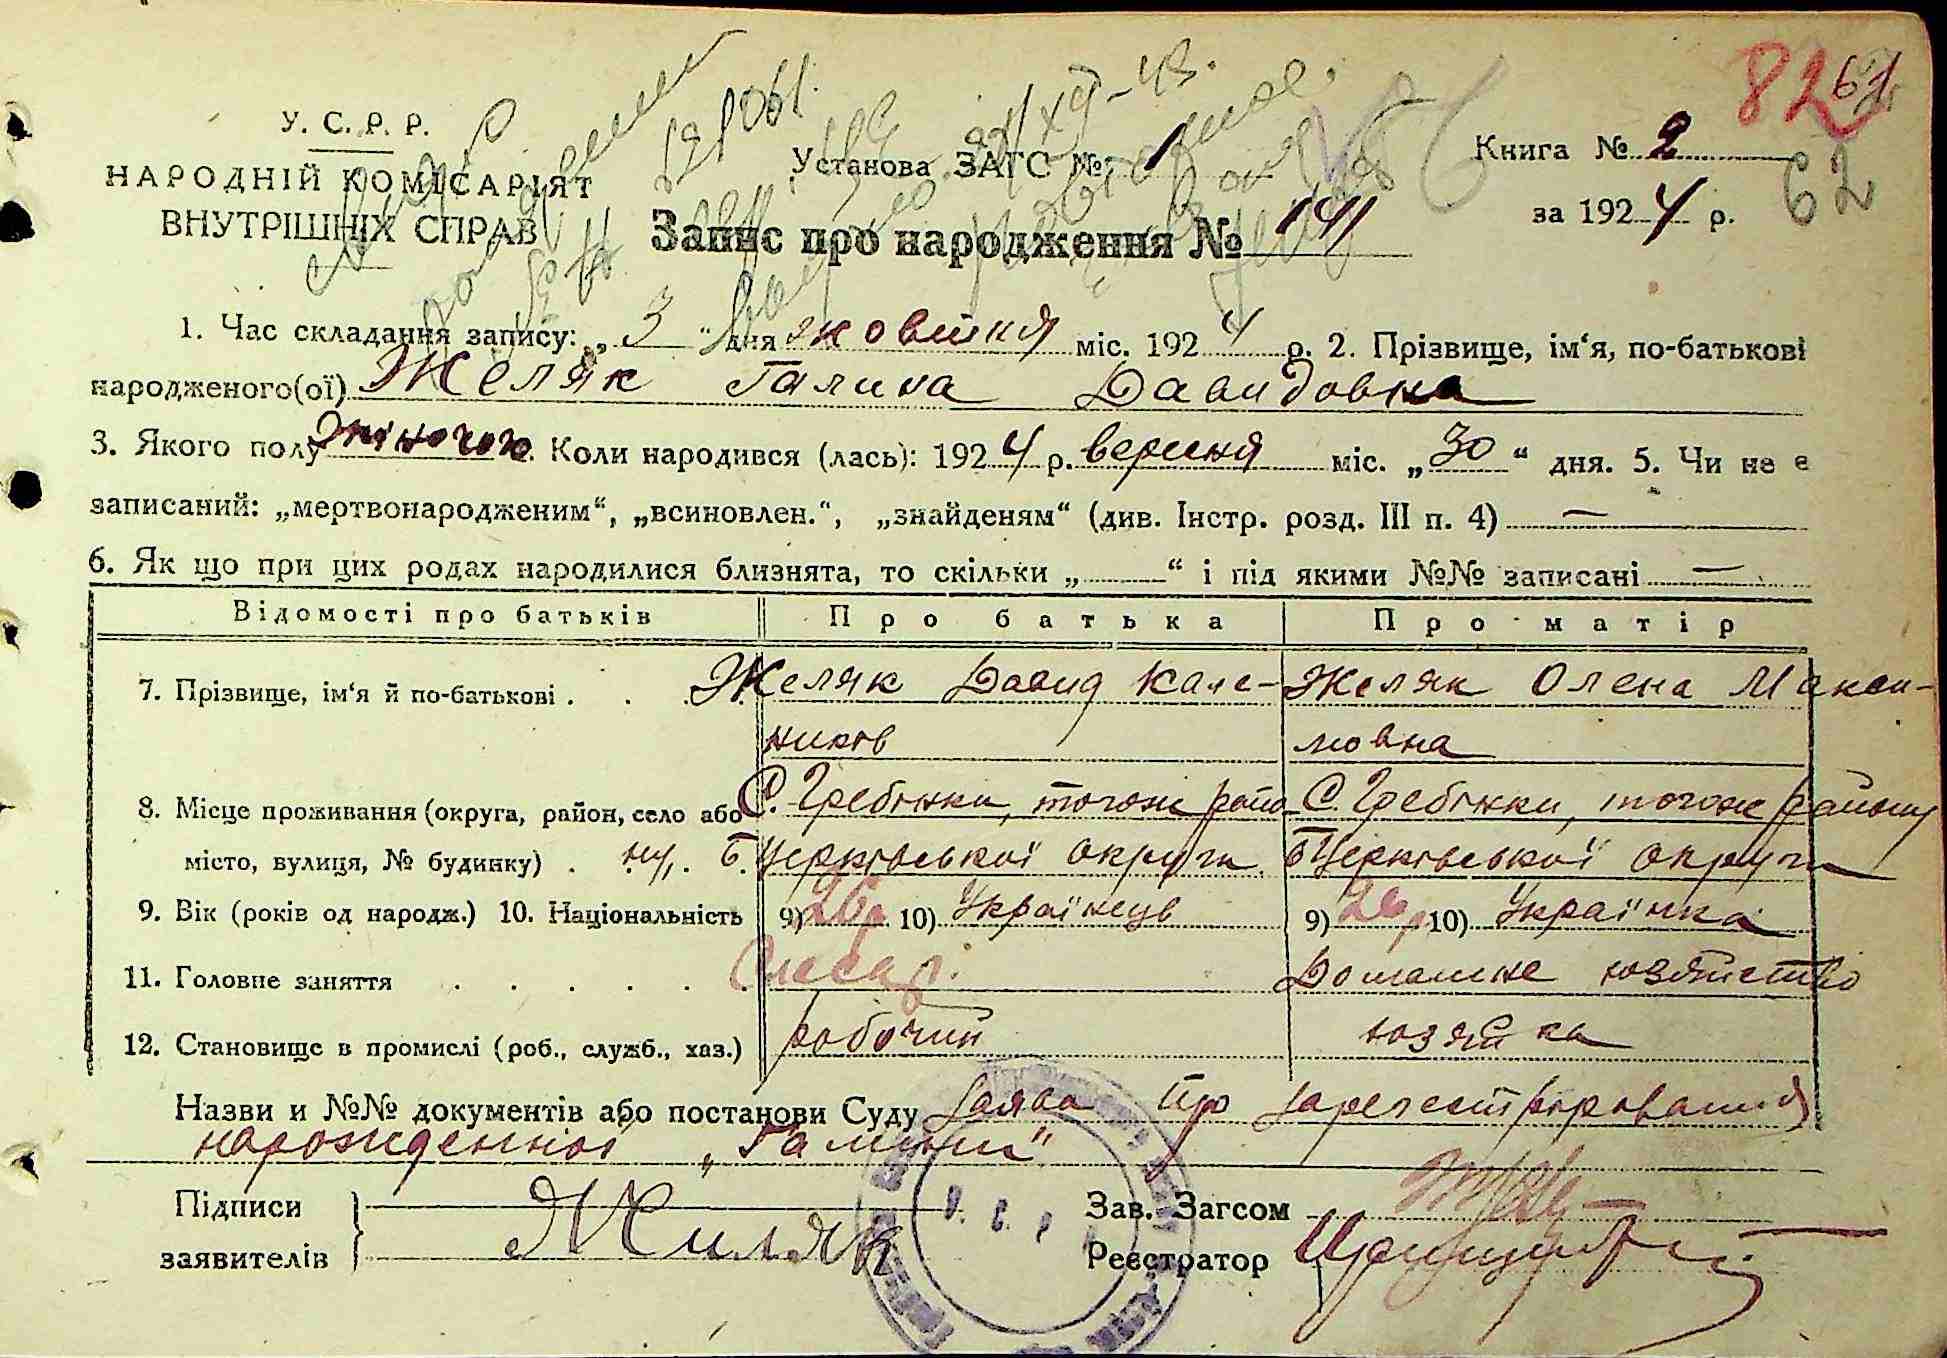 82 61
У. С. Р. Р.
НАРОДНІЙ КОМІСАРІЯТ
ВНУТРІШНІХ СПРАВ
Установа ЗАГС № 1
Книга № 2
62
за 1924 р.
Запис про народження № 141
1. Час складання запису: „ 3 “ дня жовтня міс. 1924 р. 2. Прізвище, ім‘я, по-батькові
народженого(ої) Желяк Галина Давидовна
3. Якого полу жіночого. Коли народився (лась): 1924 р. вересня міс. „30“ дня. 5. Чи не є
записаний: „мертвонародженим“, „всиновлен.“, „знайденям“ (див. Інстр. розд. III п. 4) —
6. Як що при цих родах народилися близнята, то скільки „ “ і під якими №№ записані —
Відомості про батьків Про батька Про матір
7. Прізвище, ім‘я й по-батькові . . . Желяк Давид Кале- Желяк Олена Макси-
ников мовна
8. Місце проживання (округа, район, село або С. Гребінки, тогож райо- С. Гребінки, тогож району
місто, вулиця, № будинку) . ну, Б. Церківської округи Б Церківської округи
9. Вік (років од народж.) 10. Національність 9) 26р 10) Українець 9) 26р 10) Українка
11. Головне заняття . . . . . Слесар. Домашне хозяйство
12. Становище в промислі (роб., служб., хаз.) робочий хозяйка
Назви и №№ документів або постанови Суду Заява про
нарожденної „Галини“
Підписи
заявителів
Жиляк
Зав. Загсом
Реєстратор